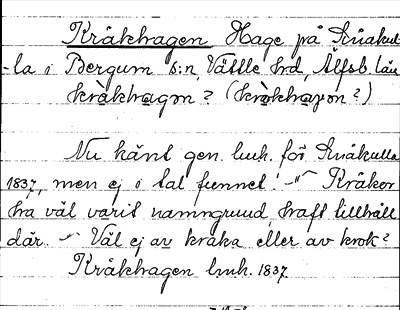 Kråkhagen Hage på Knakul-
-la i Bergum s:n Vättle hrd, Älfsb. län
kràkhagɷn? (kròkhaγɷn?)
Nu känt gen. huh. för Knåkulla
1837, men ej i tal funnet! -"- Kråkor
ha väl varit namngrund, haft tillhåll
där. -"- Väl ej av kraka eller av krok?
Kråkhagen huh. 1837